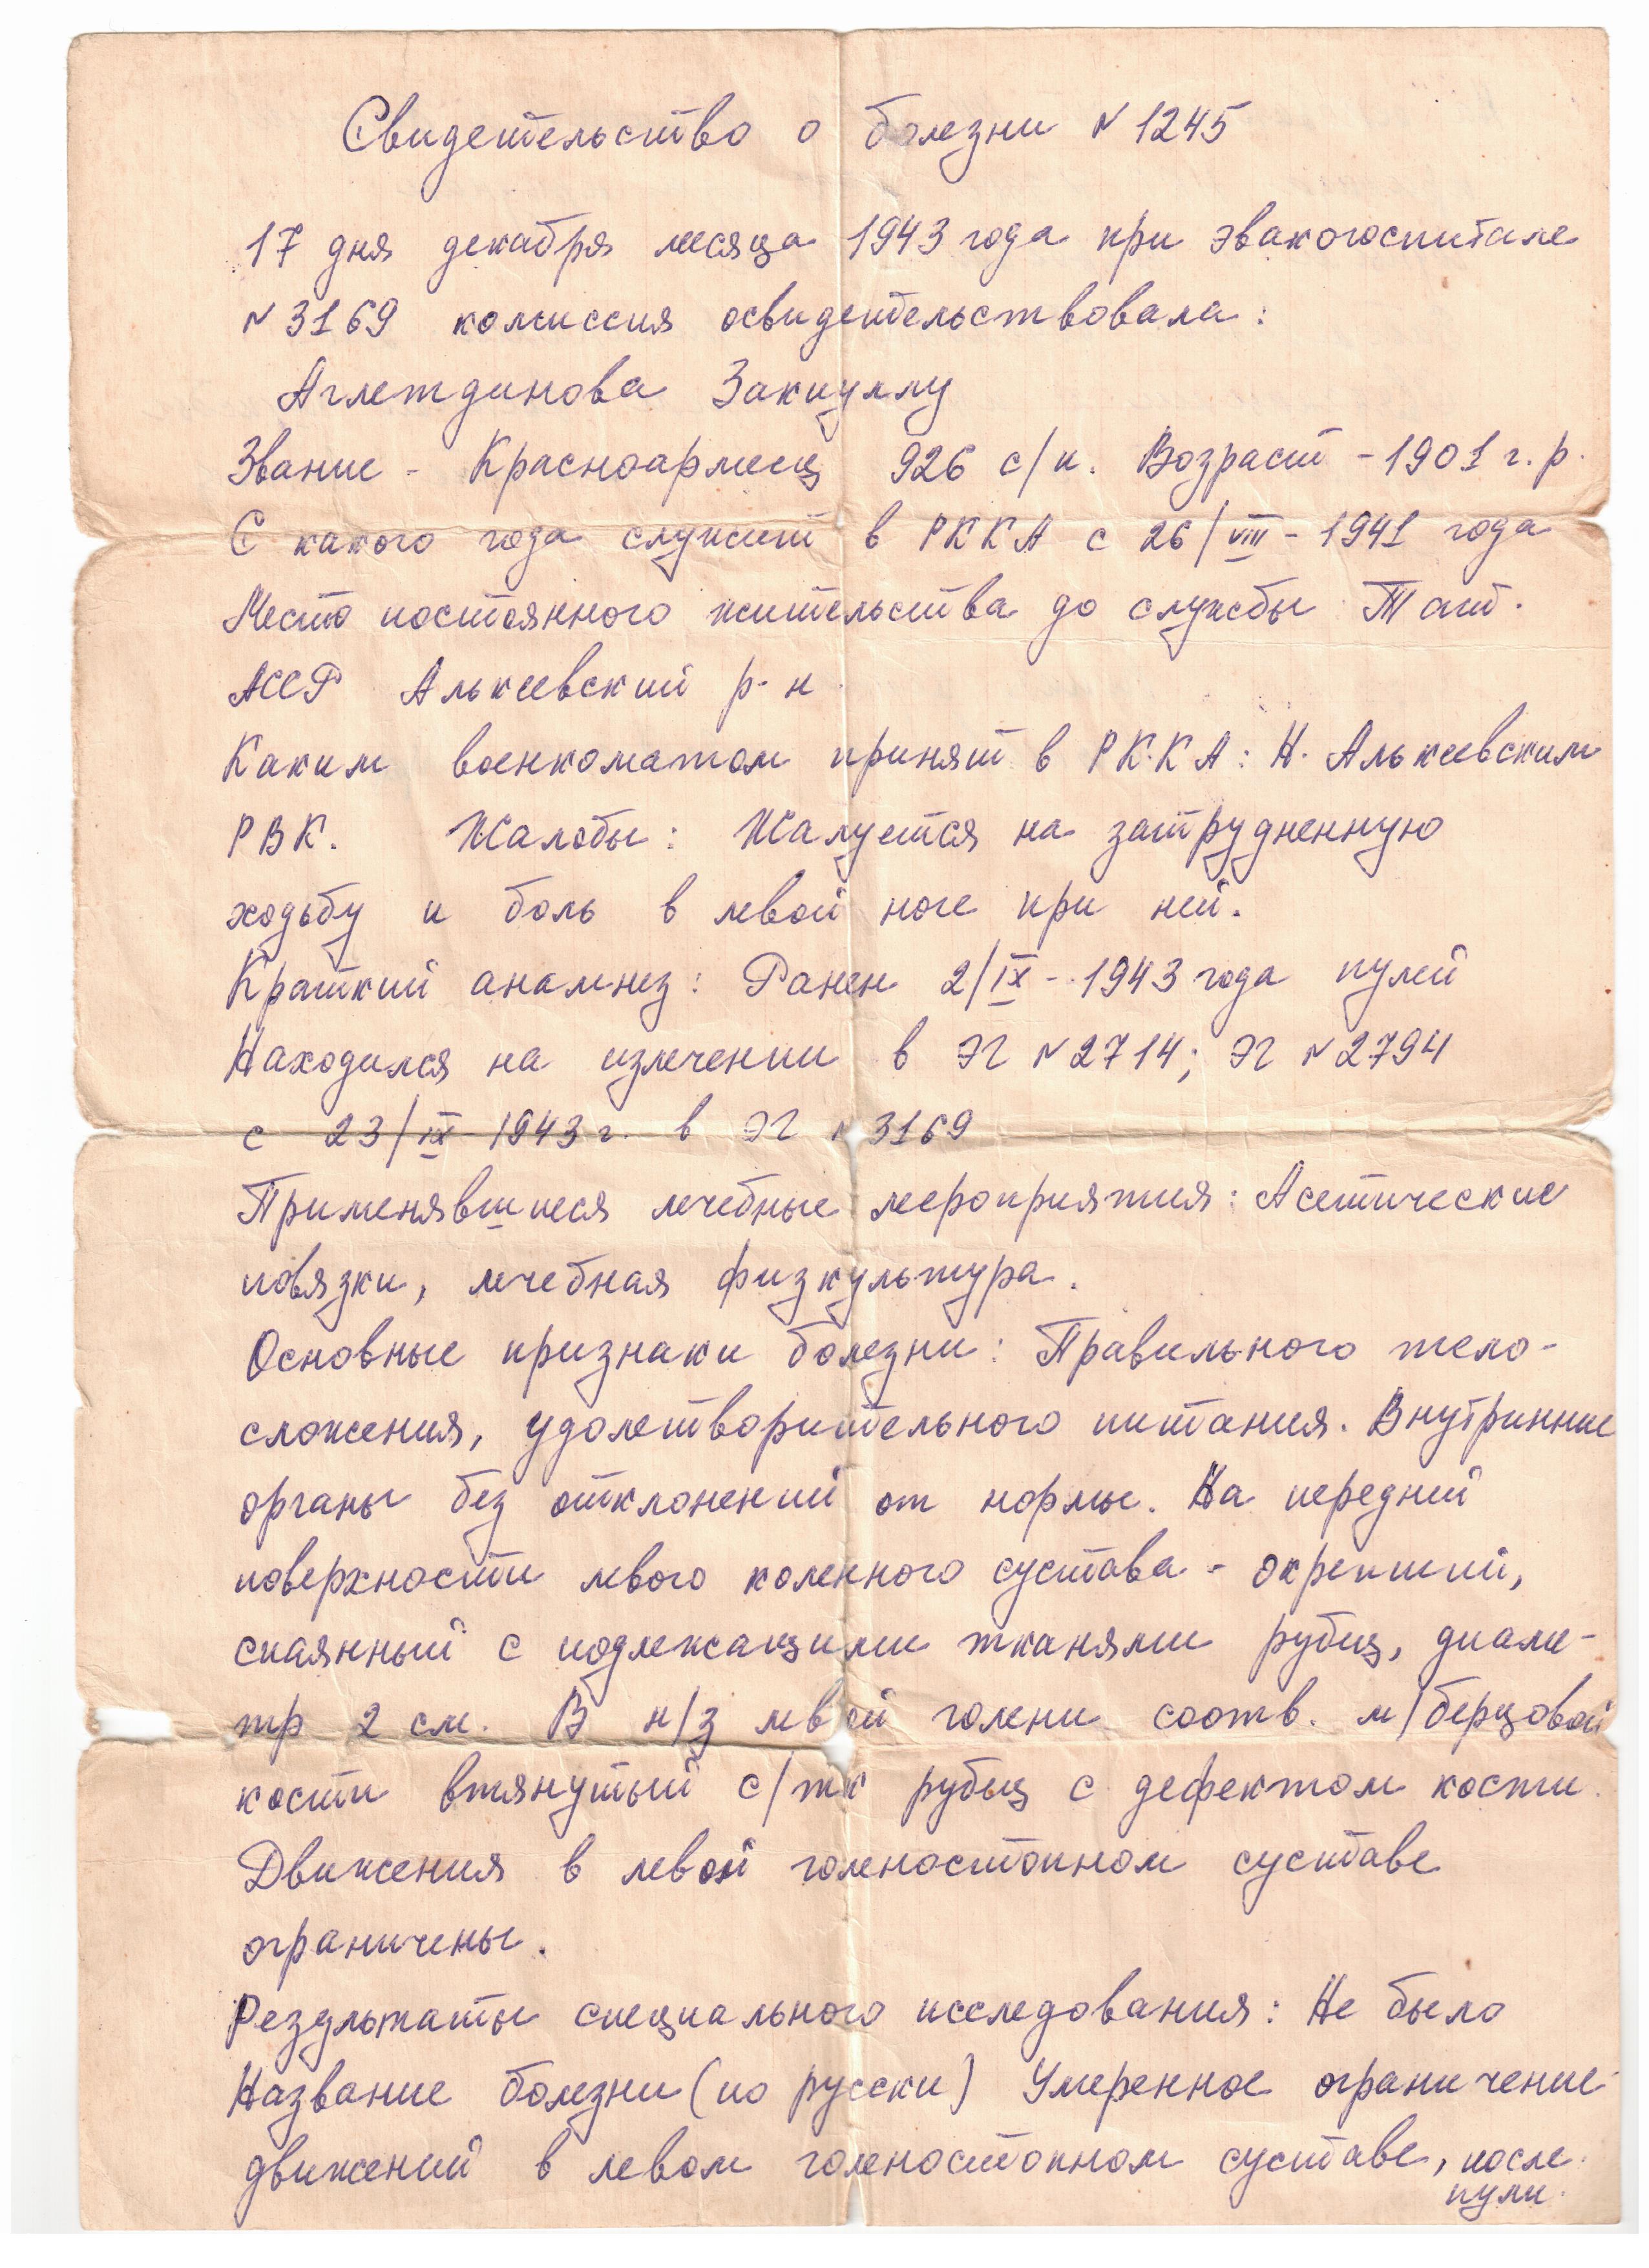 Свидетельство о болезни № 1245
17 дня декабря месяца 1943 года при эвакогоспитале
№ 3169 комиссия освидетельствовала:
Аглетдинова Закиуллу
Звание - Красноармеец 926 с/п. Возраст - 1901 г. р.
С какого года служит в РККА с 26/VIII - 1941 года
Место постоянного жительства до службы Тат.
АССР Алькеевский р-н
Каким военкоматом принят в РККА: Н. Алькеевским
РВК. Жалобы: Жалуется на затрудненную
ходьбу и боль в левой ноге при ней.
Краткий анамнез: Ранен 2/IX - 1943 года пулей
Находился на излечении в ЭГ № 2714; ЭГ № 2794
с 23/IX 1943 г. в ЭГ № 3169
Применявшиеся лечебные мероприятия: Асетические
повязки, лечебная физкультура.
Основные признаки болезни: Правильного тело-
сложения, удолетворительного питания. Внутринние
органы без отклонений от нормы. На передней
поверхности левого коленного сустава - окрепший,
спаянный с подлежащими тканями рубец, диаме-
тр 2 см. В н/з левой голени соотв. м/берцовой
кости втянутый с/тк рубец с дефектом кости.
Движения в левой голеностопном суставе
ограничены.
Результаты специального исследования: Не было
Название болезни (по русски) Умеренное ограничение
движений в левом голеностопном суставе, после
пули.